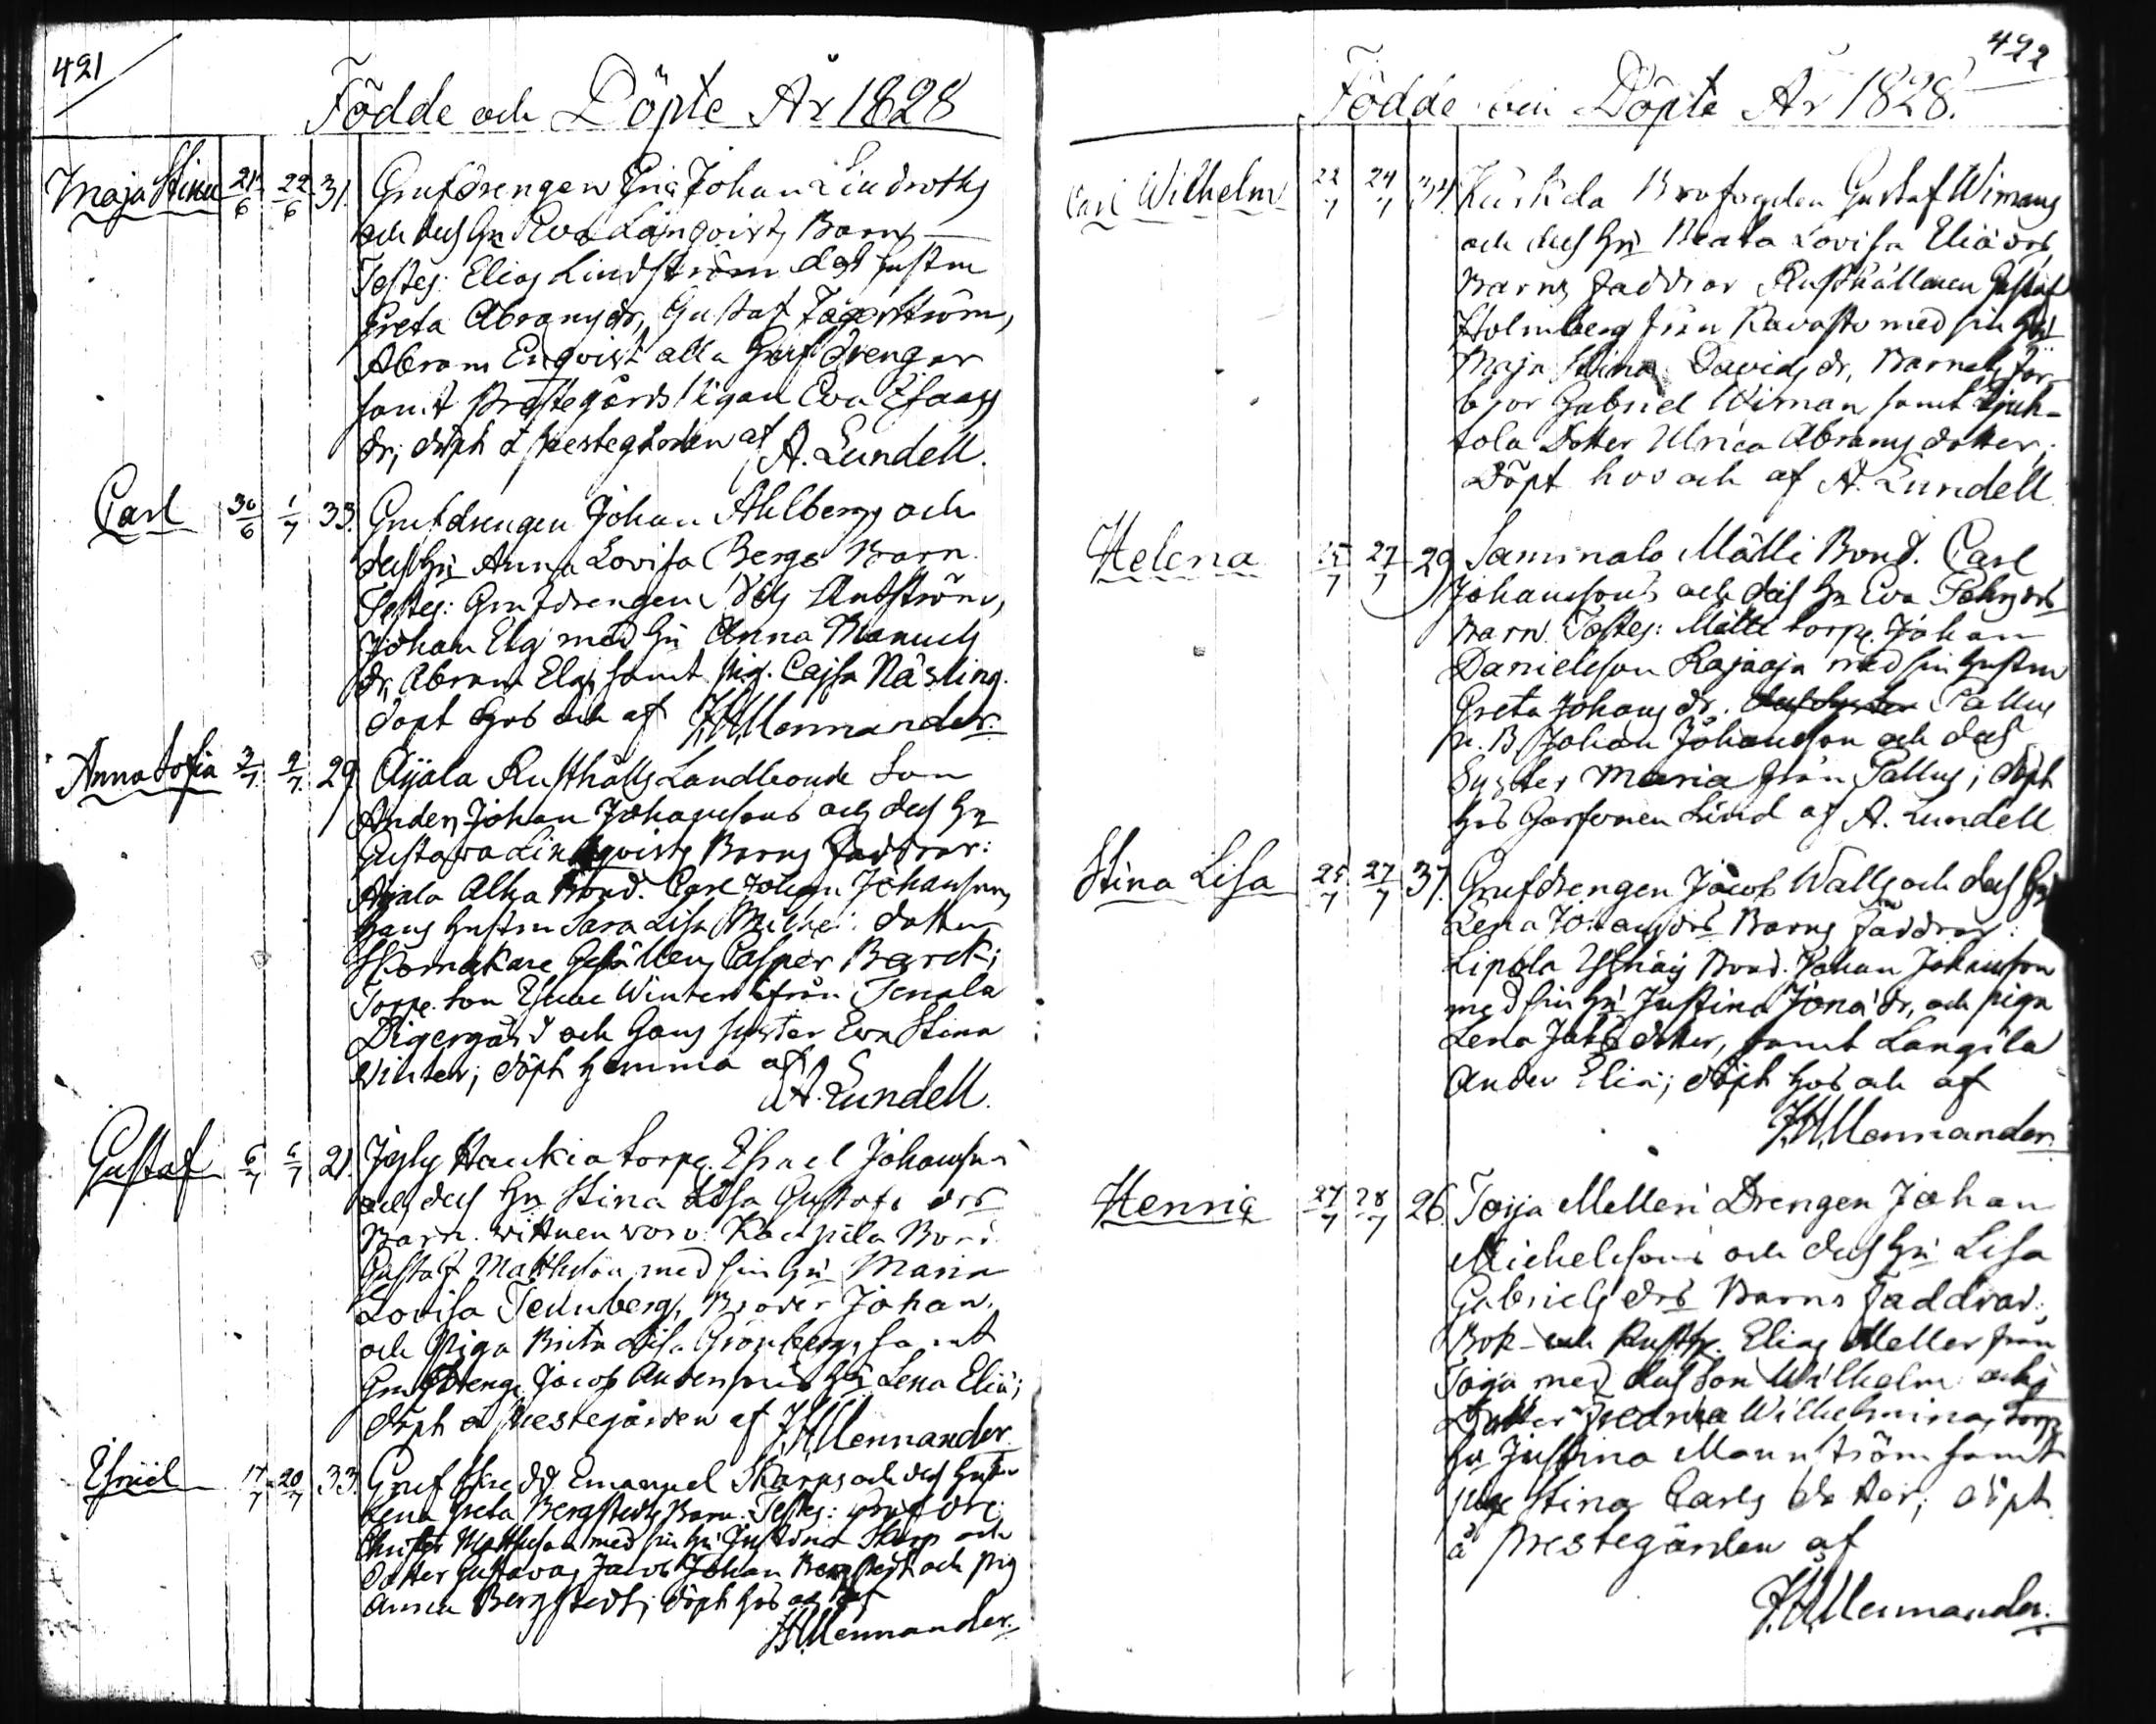 421
Födde och Döpte År 1828
Maja Stina 21/6 22/6 31. Grufdrengen Eric Johan Lindroths
och dess Hu Eva Lönqvists Barn
Testes: Elias Lindström dess hustru
Greta Abramsdr, Gustaf Tägerström,
Abram Enqvist alla Grufdrengar
samt Prestegårds Pigan Eva Esaas
dr; döpt å Prestegården af A. Lundell.
Carl 30/6 1/7 33. Grufdrengen Johan Ahlbergs och
dess Hu Anna Lovisa Bergs Barn.
Testes: Grufdrengen
Johan Elg med Hu Anna Manuels
dr, Abram Elg, samt pig. Cajsa Näsling.
döpt hos och af J.H. Mennander.
Anna Sofia 2/7. 2/7. 29. Äijälä Rusthålls Landbonde Son
Anders Johan Johanssons och dess Hu
Gustava Lindqvists Barns Faddrar:
Äijälä Alha Bond. Carl Johan Johansson,
hans hustru Sara Lisa dotter
Skomakare Gesällen Casper Barck;
Torpe. Son Winter ifrån Tenala
Digergård och hans syster Eva Stina
Winter; döpt hemma af
A. Lundell.
Gustaf 6/7 6/7 21. Haukia torpe. Esrael Johanssons
och dess Hu Stina Lisa Gustafs drs
Barn. Vittnen voro: Kaukila Bond
Gustaf Mathsson med sin Hu Maria
Lovisa Ternberg, Broder Johan
och Piga Brita Lisa Grönberg, samt
Grufdreng. Jacob Anderssons Hu Lena Eliæ;
döpt å Prestegården af J.H. Mennander.
Esrael 17/7 20/7 33. Gruf Emanuel Skarps och dess Hustru
Lena Greta Bergstedts Barn. Testes: Grufdre.
Christer Mattsson med sin Hu Justina Skarp och
dotter Gustava, Jacob Johan Bergstedt och pig
Anna Bergstedt; döpt hos och af
J.H. Mennander.
422
Födde och Döpte År 1828.
Carl Wilhelm 22/7 24/7 34. Koskela Brofogden Gustaf Wimans
och dess Hu Beata Lovisa Eliædrs
Barns Faddrar Rusthållaren Gustaf
Holmberg från Kavasto med sin Hu
Maja Stina Davids dr, Barnets Far-
bror Gabriel Wiman samt
tola Dotter Ulrica Abrams dotter;
Döpt hos och af A. Lundell
Helena 25/7 27/7 29. Saminalo Mälli Bond. Carl
Johanssons och dess Hu Eva drs
Barn. Testes: Mälli torpe. Johan
Danielsson Rajaoja med sin hustru
Greta Johans dr. Pallus
n. B Johan Johansson och dess
Syster Maria från Pallus; döpt
hos Garfvaren Lind af A. Lundell
Stina Lisa 25/7 27/7 37. Grufdrengen Jacob Walls och dess Hu
Lena Johansdrs Barns Faddrar:
Lipola Yrhäis Bond. Johan Johansson
med sin Hu Justina Jona dr, och piga
Lena Jakobs dotter, samt Langila
Anders Eliæ; döpt hos och af
J.H. Mennander.
Henric 27/7 28/7 26. Toija Melleri Drengen Johan
Michelssons och dess Hu Lisa
Gabriels drs Barns Faddrar:
Bok- och Rusth. Elias Meller från
Toija med dess Son Wilhelm och
Dotter Fredrica Wilhelmina, Torp
Hu Justina Mannström samt
piga Stina Carls dotter; döpt
å Prestegården af
J.H. Mennander.